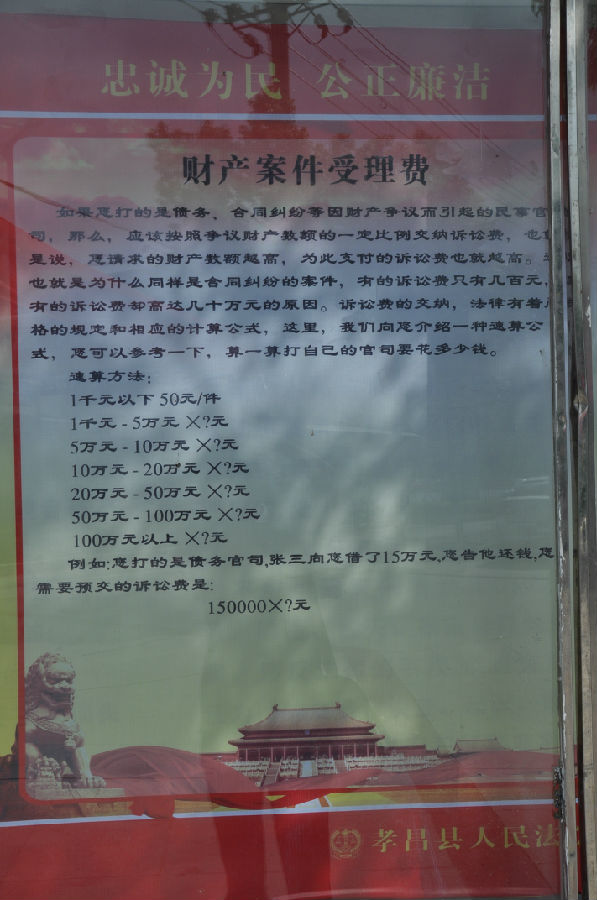 忠诚为民 公正廉洁
财产案件受理费
如果您打的是债务、合同纠纷等因财产争议而引起的民事官
司，那么，应该按照争议财产数额的一定比例交纳诉讼费，也
是说，您请求的财产数额越高，为此支付的诉讼费也就越高。
也就是为什么同样是合同纠纷的案件，有的诉讼费只有几百元，
有的诉讼费却高达几十万元的原因。诉讼费的交纳，法律有着
格的规定和相应的计算公式，这里，我们向您介绍一种速算公
式，您可以参考一下，算一算打自己的官司要花多少钱。
速算方法：
1千元以下 50元/件
1千元 - 5万元 ×?元
5万元 - 10万元 ×?元
10万元 - 20万元 ×?元
20万元 - 50万元 ×?元
50万元 - 100万元 ×?元
100万元以上 ×?元
例如:您打的是债务官司,张三向您借了15万元,您告他还钱,您
需要预交的诉讼费是:
150000×?元
孝昌县人民法